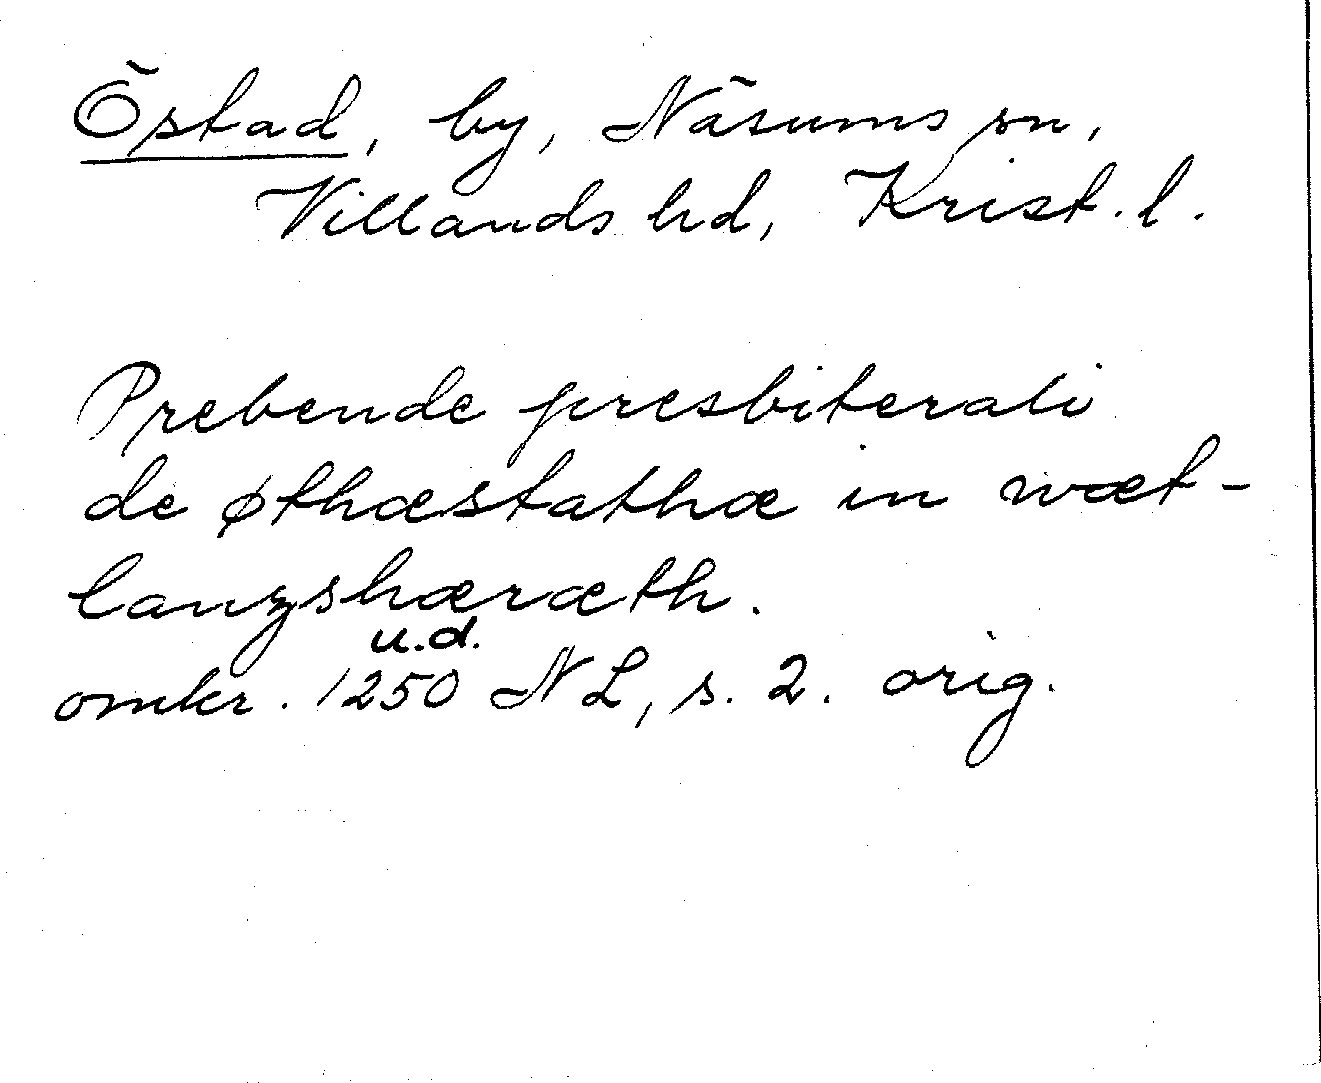 Östad, by, Näsums sn,
Villands hd, Krist. l.
Prebende presbiterali
de øthæstathæ in wæt-
langshæræth.
u.d.
omkr. 1250 NL, s. 2. orig.